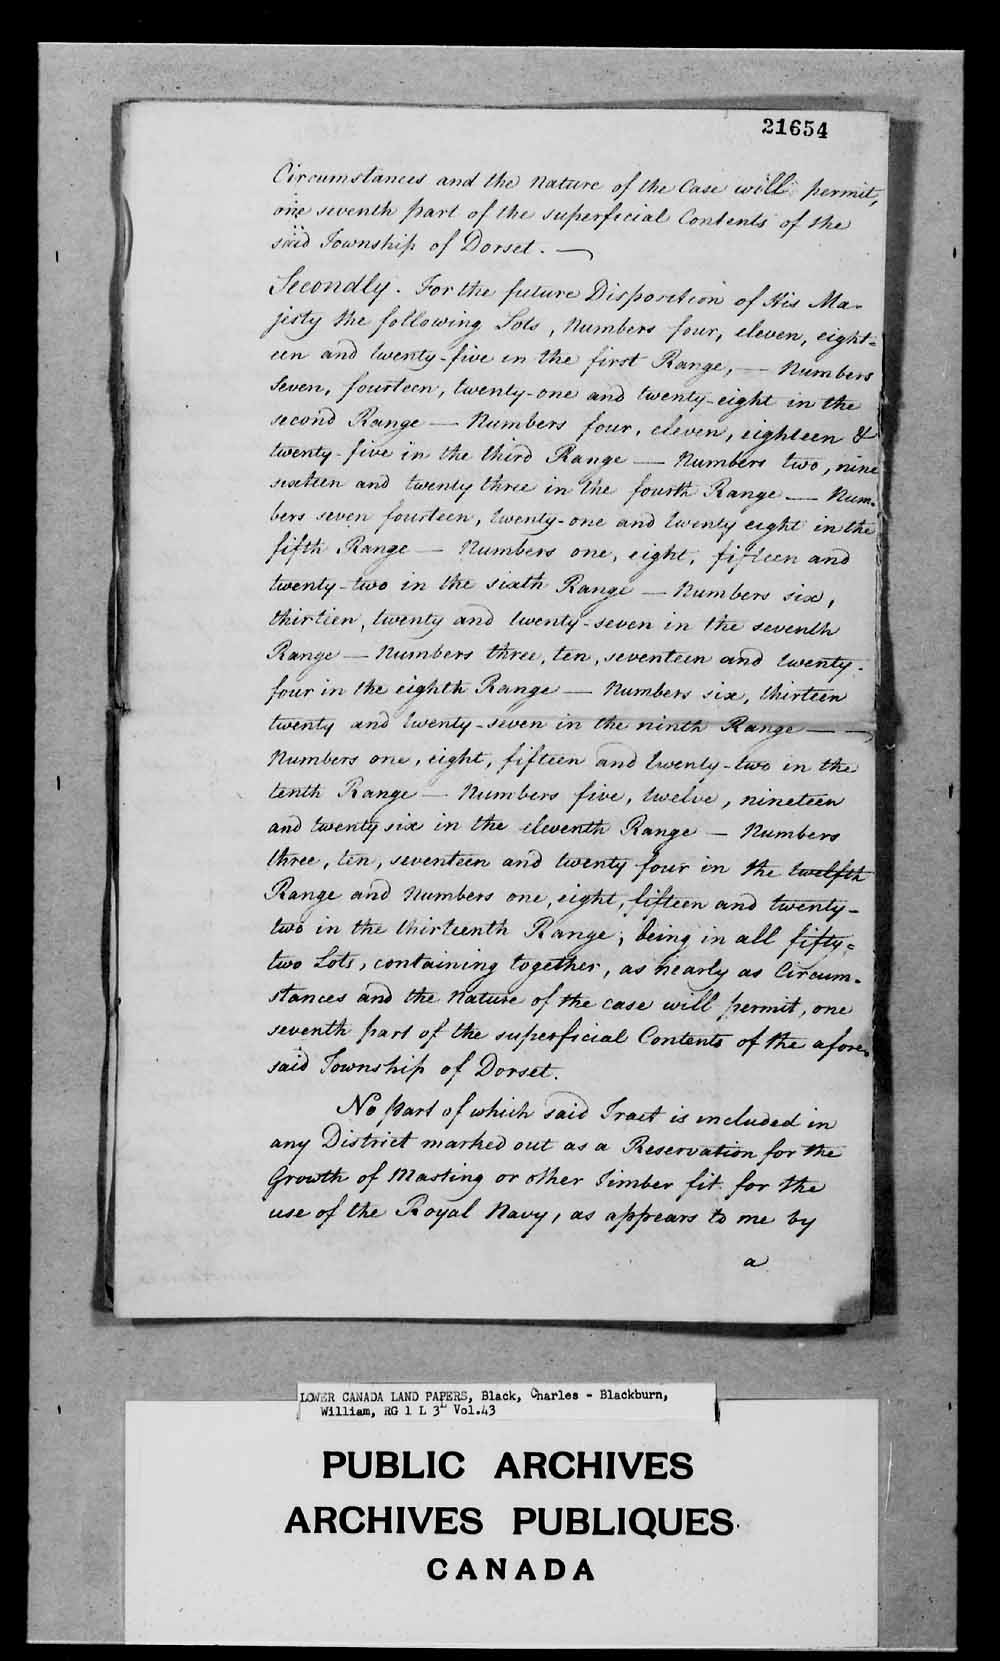 21654
Circumstances and the Nature of the Case will permit,
one seventh part of the superficial Contents of the
said Township of Dorset. —
Secondly. For the future Disposition of His Ma-
jesty the following Lots, Numbers four, eleven, eight=
een and twenty-five in the first Range, — Numbers
Seven, fourteen, twenty-one and twenty-eight in the
second Range — Numbers four, eleven, eighteen &
twenty-five in the third Range — Numbers two, nine
sixteen and twenty three in the fourth Range — Num-
bers seven fourteen, twenty-one and twenty eight in the
fifth Range — Numbers one, eight, fifteen and
twenty-two in the sixth Range — Numbers six,
thirteen, twenty and twenty-seven in the seventh
Range — Numbers three, ten, seventeen and twenty-
four in the eighth Range — Numbers six, thirteen
twenty and twenty-seven in the ninth Range — —
Numbers one, eight, fifteen and twenty-two in the
tenth Range — Numbers five, twelve, nineteen
and twenty six in the eleventh Range — Numbers
three, ten, seventeen and twenty four in the twelfth
Range and Numbers one, eight, fifteen and twenty-
two in the thirteenth Range; being in all fifty=
two Lots, containing together, as nearly as Circum-
stances and the Nature of the case will permit, one
seventh part of the superficial Contents of the afore-
said Township of Dorset.
No part of which said Tract is included in
any District marked out as a Reservation for the
Growth of Masting or other Timber fit for the
use of the Royal Navy, as appears to me by
a
LOWER CANADA LAND PAPERS, Black, Charles - Blackburn,
William, RG 1 L 3L Vol.43
PUBLIC ARCHIVES
ARCHIVES PUBLIQUES
CANADA